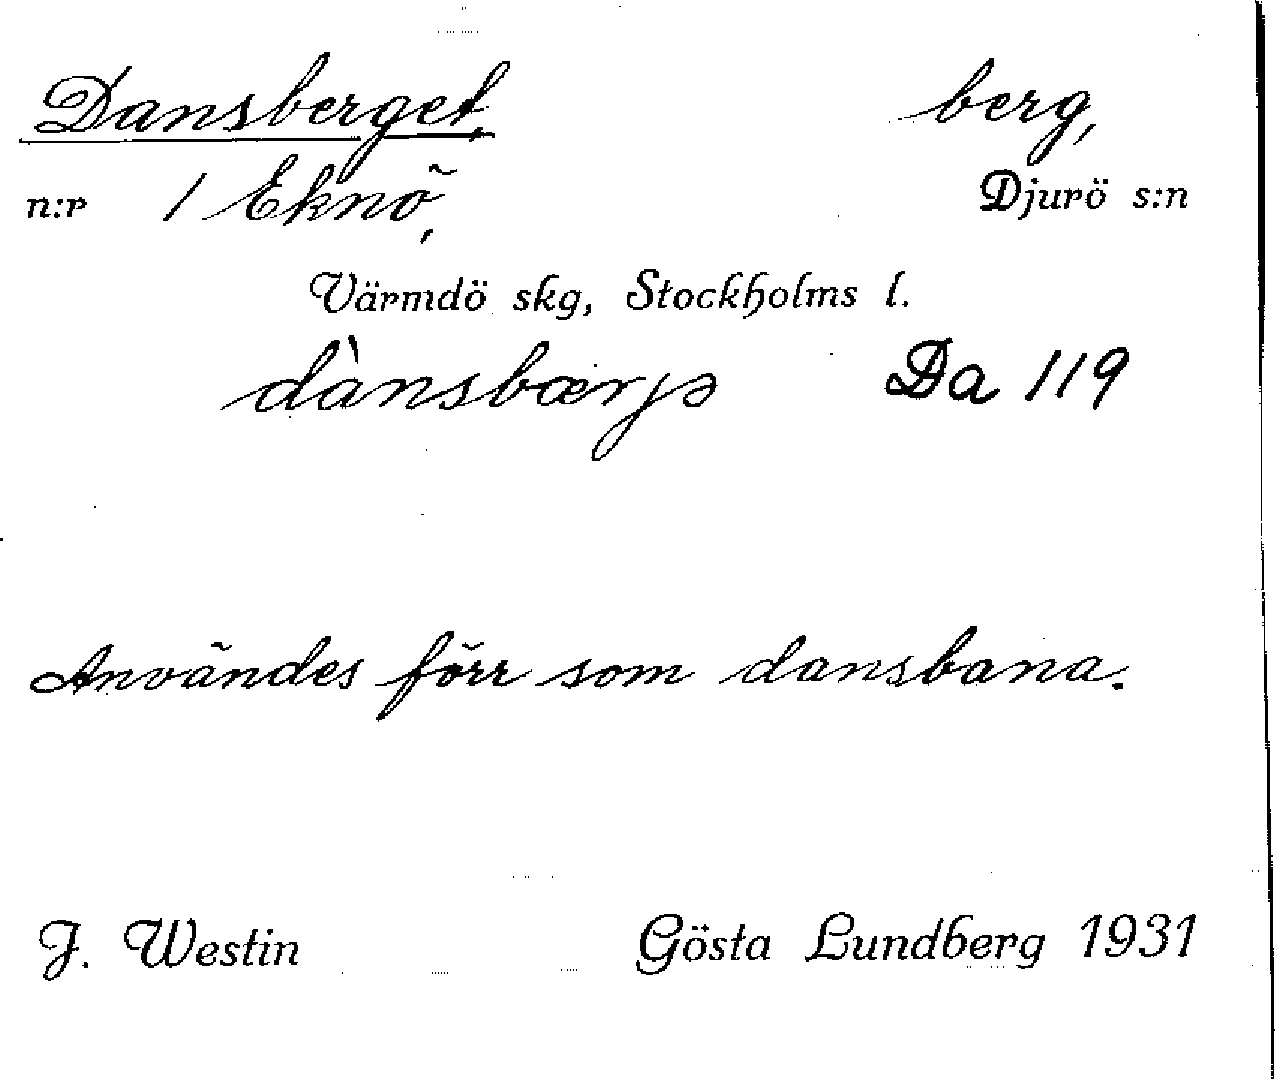 Dansberget, berg,
n:r 1 Eknö, Djurö s:n
Värmdö skg, Stockholms l.
dànsbærjə Da 119
Användes förr som dansbana.
J. Westin Gösta Lundberg 1931